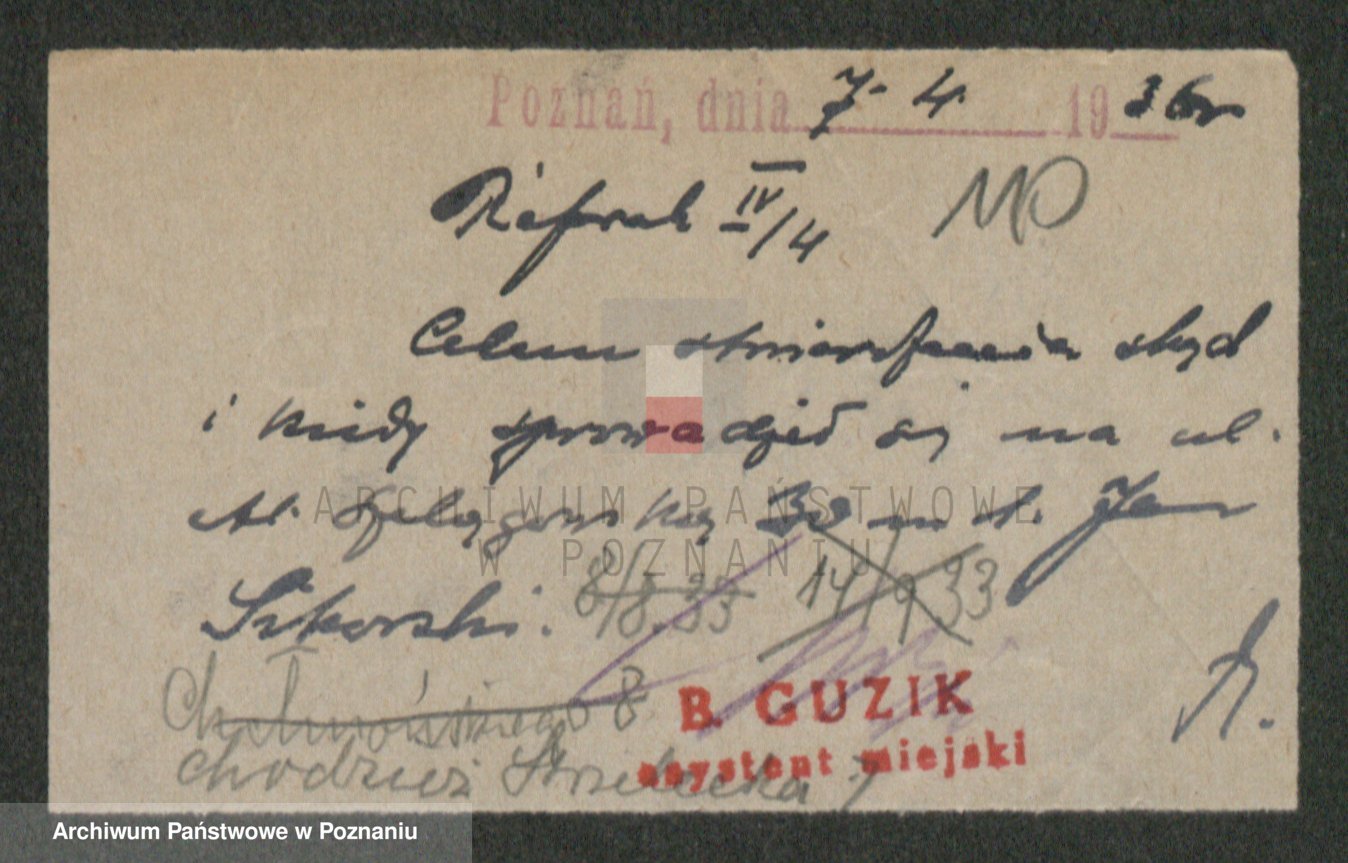 Poznań, dnia 7. 4. 1936 r
Referat IV/4 MP
Celem stwierdzenia skąd
i kiedy sprowadził się na ul.
St. Szelągowską 30 m. 1. Jan
Sikorski.
8/8. 33 14/9 33
8
B. GUZIK
asystent miejski
Chodzież Strzelecka 7
ARCHIWUM PAŃSTWOWE
W POZNANIU
Archiwum Państwowe w Poznaniu